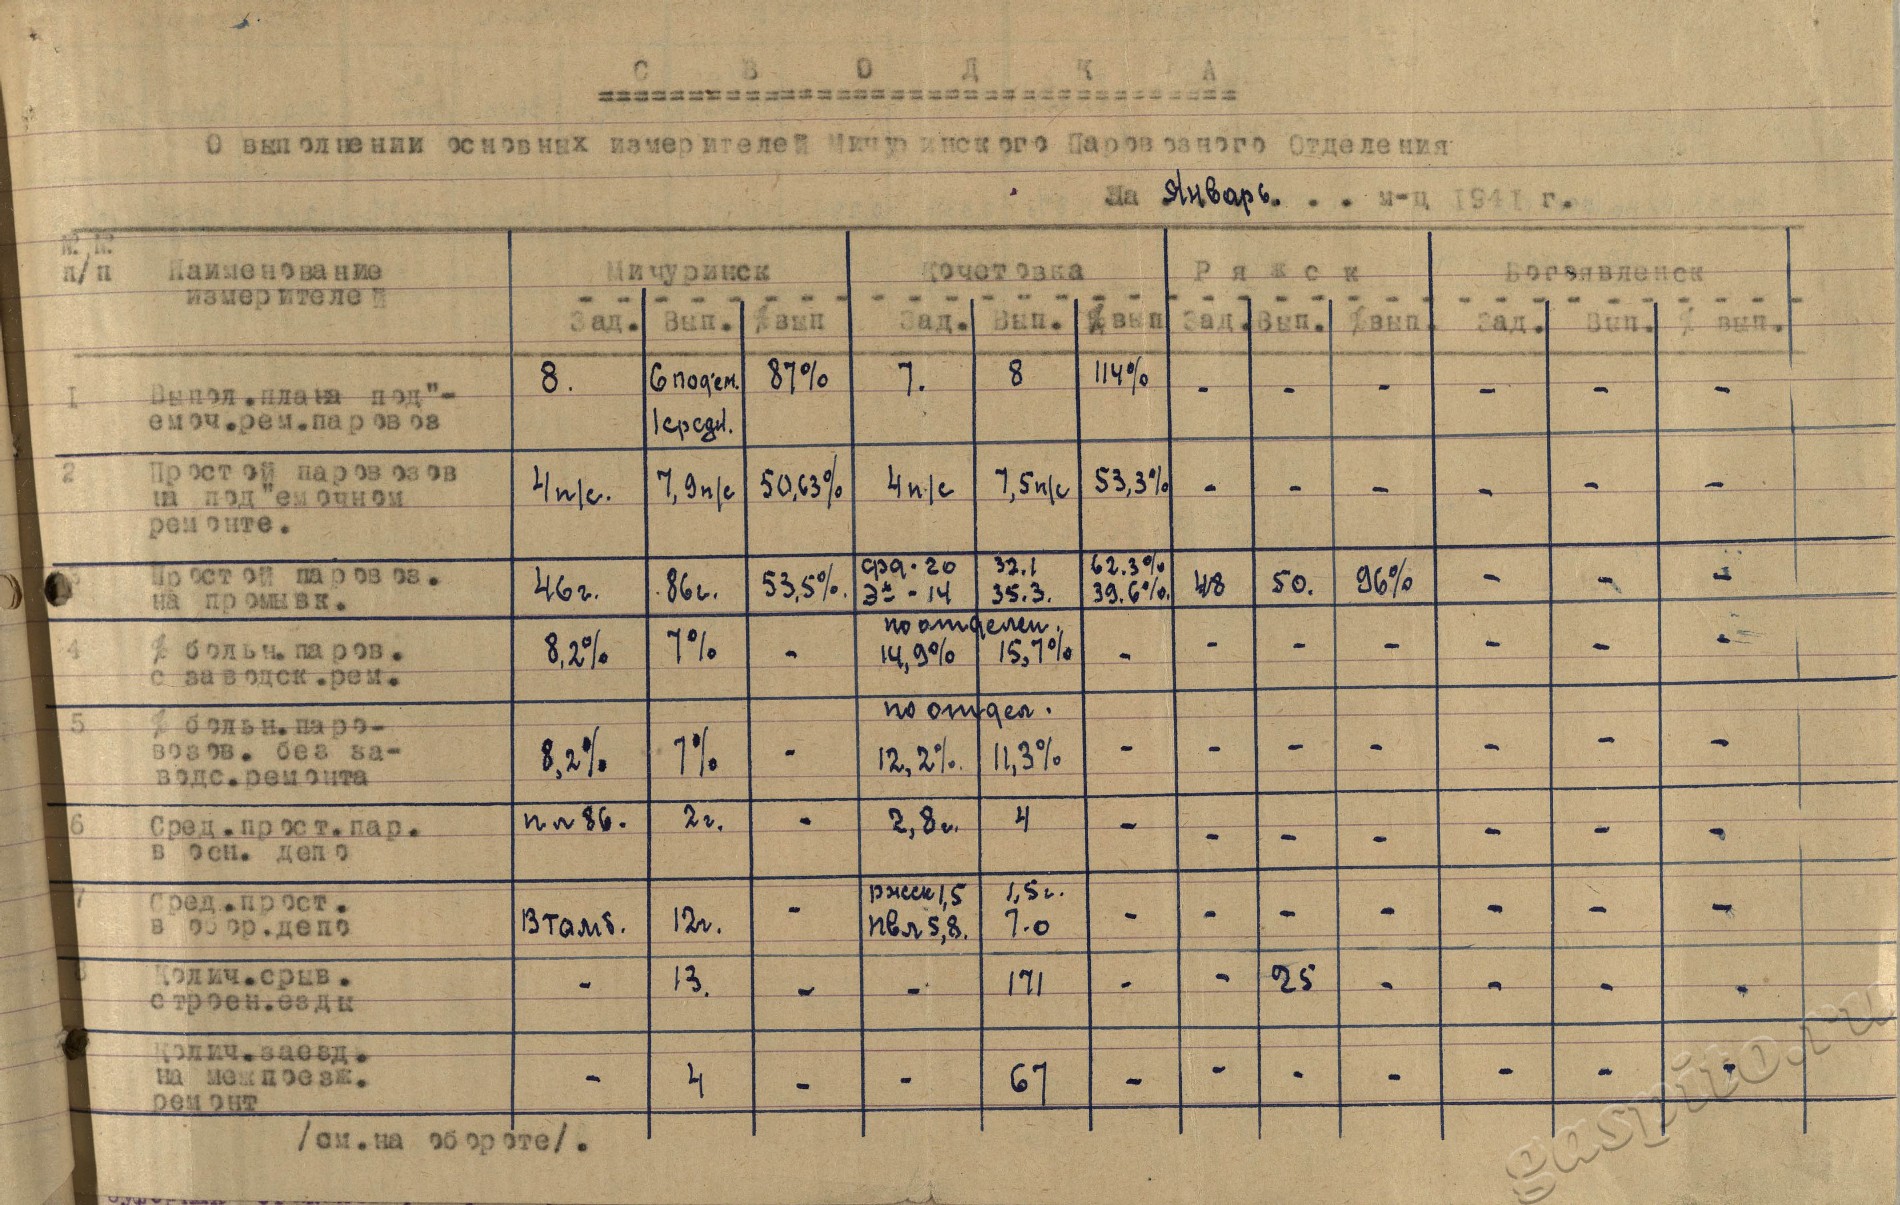 С В О Д К А
О выполнении основных измерителей Мичуринского Паровозного Отделения
На Январь. . . м-ц 1941 г.
№ № п/п
Наименование измерителей
Мичуринск Кочетовка Ряжск Богоявленск
Зад. Вып. % вып Зад. Вып. % вып Зад. Вып. % вып. Зад. Вып. % вып.
1 Выпол.плана под"- 8. 6 под'ем. 87% 7. 8 114% - - - - - -
емоч.рем.паровоз 1 средн.
2 Простой паровозов
на под"емочном 4 п/с. 7,9 п/с 50,63% 4 п/с 7,5 п/с 53,3% - - - - - -
ремонте.
3 Простой паровоз. фд - 20 32.1 62.3%
на промывк. 46 г. 86 г. 53,5%. Эм - 14 35.3. 39.6%. 48 50. 96% - - -
по отделен.
4 % больн.паров. 8,2% 7% - 14,9% 15,7% - - - - - - -
с заводск.рем.
5 % больн.паро- по отдел.
возов. без за- 8,2% 7% - 12,2%. 11,3% - - - - - - -
водс.ремонта
6 Сред.прост.пар. 2 г. - 2,8 г. 4 - - - - - - -
в осн. депо
7 Сред.прост. 1,5 1,5 г.
в обор.депо 12 г. - 5,8. 7.0 - - - - - - -
8 Колич.срыв. - 13. - - 171 - - 25 - - - -
строен.езды
Колич.заезд.
на межпоезж. - 4 - - 67 - - - - - - -
ремонт
/см.на обороте/.
gaspito.ru